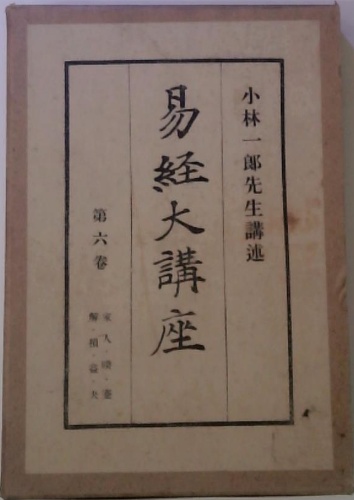 小林一郎先生講述
易経大講座
第六巻
家人・睽・蹇
解・損・益・夬